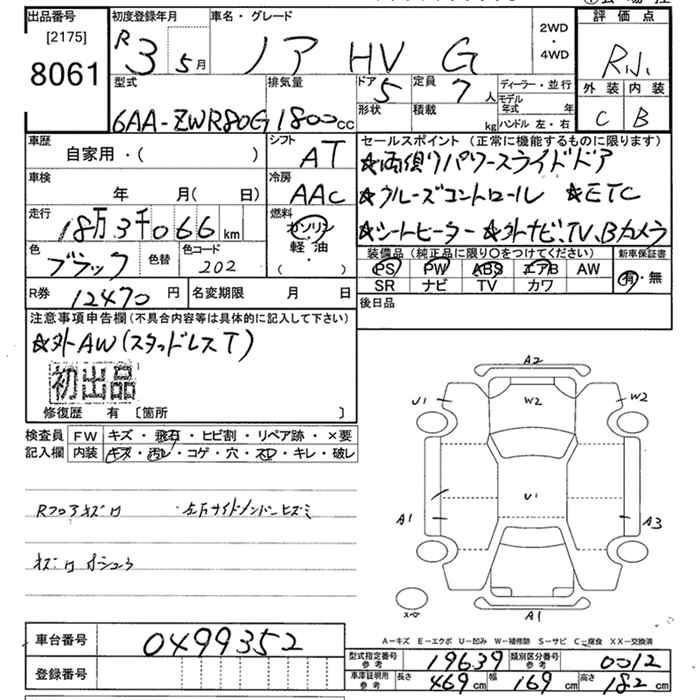 出品番号
[2175]
8061
初度登録年月
R3 5月
車名・グレード
ノア HV G
2WD
・
4WD
評価点
外装 内装
C B
型式
6AA-ZWR80G
排気量
1800cc
ドア 5
形状
定員 7人
積載 kg
ディーラー・並行
モデル年式 年
ハンドル 左・右
車歴
自家用・( )
シフト
AT
セールスポイント(正常に機能するものに限ります)
☆両側パワースライドドア
☆クルーズコントロール ☆ETC
☆シートヒーター ☆外ナビ、TV、Bカメラ
車検
年 月( 日)
冷房
AAC
走行
18万3千066km
燃料
ガソリン
軽油
( ・ )
色
ブラック
色替
色コード
202
装備品(純正品に限り○をつけてください)
PS PW ABS エアB AW
SR ナビ TV カワ
新車保証書
有・無
R券 12470円
名変期限 月 日
後日品
注意事項申告欄(不具合内容等は具体的に記入して下さい)
☆外AW(スタッドレスT)
初出品
修復歴 有 〔箇所 〕
検査員 FW キズ・飛石・ヒビ割・リペア跡・×要
記入欄 内装 キズ・汚レ・コゲ・穴・スレ・キレ・破レ
Rフロアキズロ
A2
U1 W2 W2
U1
A1 A3
A1
A-キズ E-エクボ U-凹み W-補修跡 S-サビ C-腐食 XX-交換済
車台番号 0499352
登録番号
型式指定番号 参考 19639 類別区分番号 参考 0012
車庫証明用 参考 長さ 469cm 幅 169cm 高さ 182cm